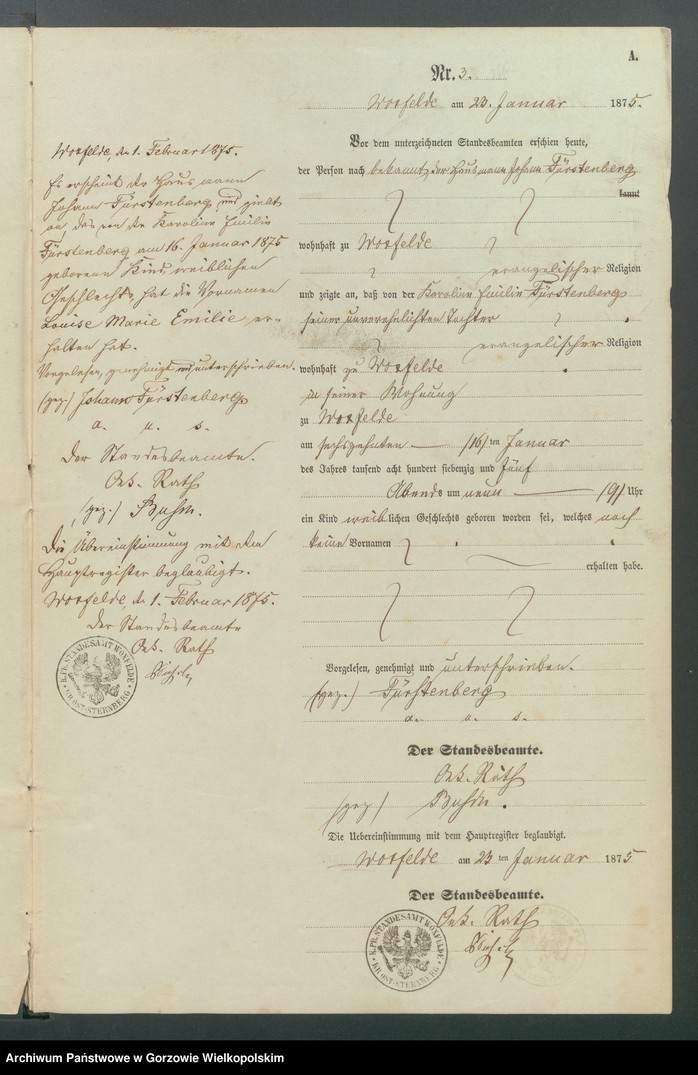 A.
Nr. 3.
Woxfelde am 23. Januar 1875.
Vor dem unterzeichneten Standesbeamten erschien heute,
der Person nach bekannt, der Hausmann Johann Fürstenberg
kannt
wohnhaft zu Woxfelde
evangelischer Religion
und zeigte an, daß von der Karoline Emilie Fürstenberg
seiner unverehelichten Tochter
evangelischer Religion
wohnhaft zu Woxfelde
in seiner Wohnung
zu Woxfelde
am sechszehnten /16/ ten Januar
des Jahres tausend acht hundert siebenzig und fünf
Abends um neun /9/ Uhr
ein Kind weiblichen Geschlechts geboren worden sei, welches noch
keine Vornamen
erhalten habe.
Vorgelesen, genehmigt und unterschrieben.
(gez.) Fürstenberg
a. u. s.
Der Standesbeamte.
Oek. Rath
(gez)
Die Uebereinstimmung mit dem Hauptregister beglaubigt.
Woxfelde am 23 ten Januar 1875
Der Standesbeamte.
Oek. Rath
K.PR.STANDESAMT WOXFELDE
KR.OST-STERNBERG
Woxfelde, den 1. Februar 1875.
Es erscheint der Hausmann
Johann Fürstenberg und zeigt
an, das von der Karoline Emilie
Fürstenberg am 16. Januar 1875
geborene Kind weiblichen
Geschlechts hat die Vornamen
Louise Marie Emilie er-
halten hat.
Vorgelesen, genehmigt und unterschrieben.
(gez.) Johann Fürstenberg
a. u. s.
Der Standesbeamte.
Oek. Rath
(gez.)
Die Übereinstimmung mit dem
Hauptregister beglaubigt.
Woxfelde, den 1. Februar 1875.
Der Standesbeamte
Oek. Rath
K.PR.STANDESAMT WOXFELDE
KR.OST-STERNBERG
Archiwum Państwowe w Gorzowie Wielkopolskim